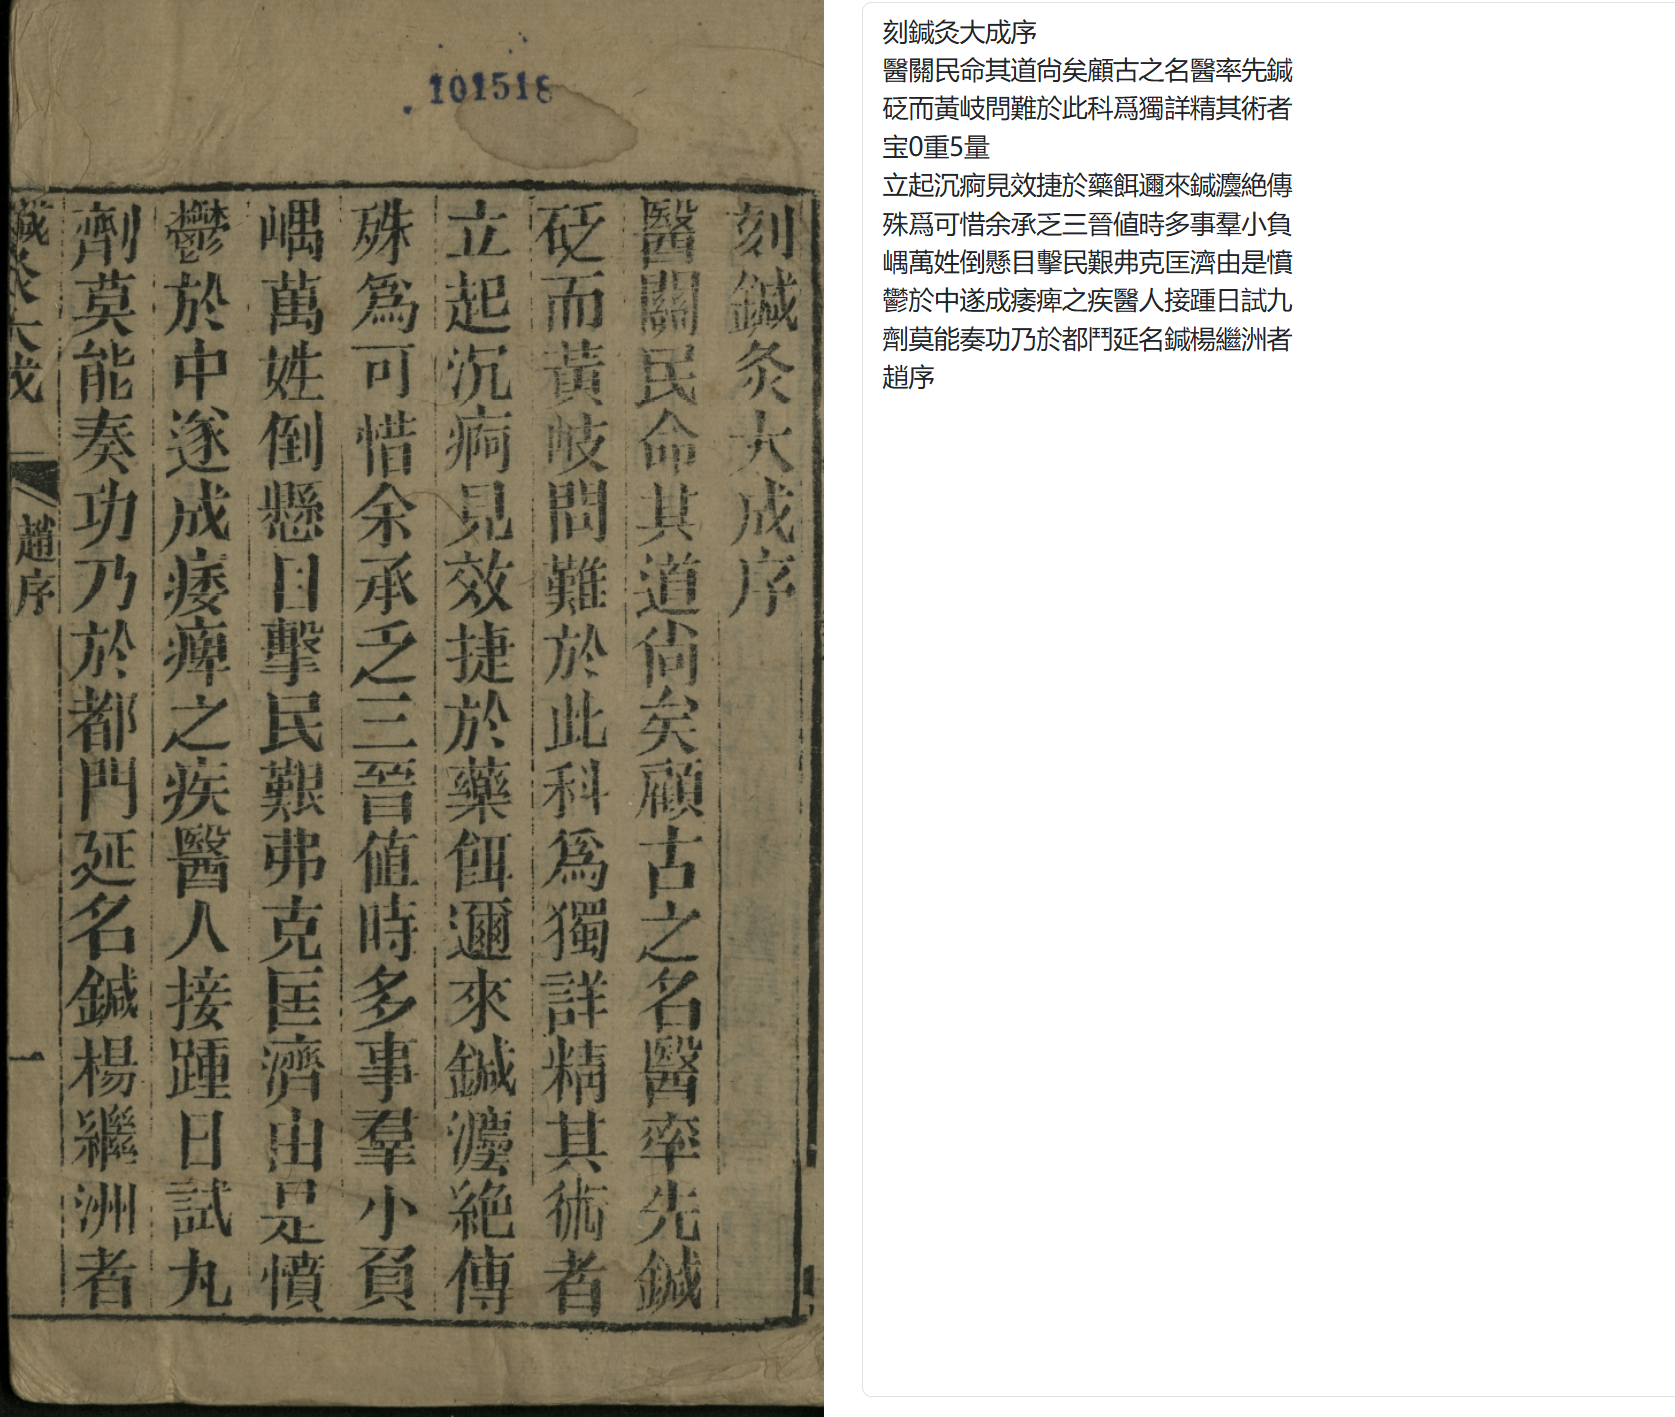 101518
刻鍼灸大成序
醫關民命其道尙矣顧古之名醫率先鍼
砭而黃岐問難於此科爲獨詳精其術者
立起沉痾見效捷於藥餌邇來鍼灋絶傳
殊爲可惜余承乏三晉値時多事羣小負
嵎萬姓倒懸目擊民艱弗克匡濟由是憤
鬱於中遂成痿痺之疾醫人接踵日試丸
劑莫能奏功乃於都門延名鍼楊繼洲者
鍼灸大成
趙序
一
刻鍼灸大成序
醫關民命其道尙矣顧古之名醫率先鍼
砭而黃岐問難於此科爲獨詳精其術者
宝0重5量
立起沉痾見效捷於藥餌邇來鍼灋絶傳
殊爲可惜余承乏三晉値時多事羣小負
嵎萬姓倒懸目擊民艱弗克匡濟由是憤
鬱於中遂成痿痺之疾醫人接踵日試九
劑莫能奏功乃於都鬥延名鍼楊繼洲者
趙序